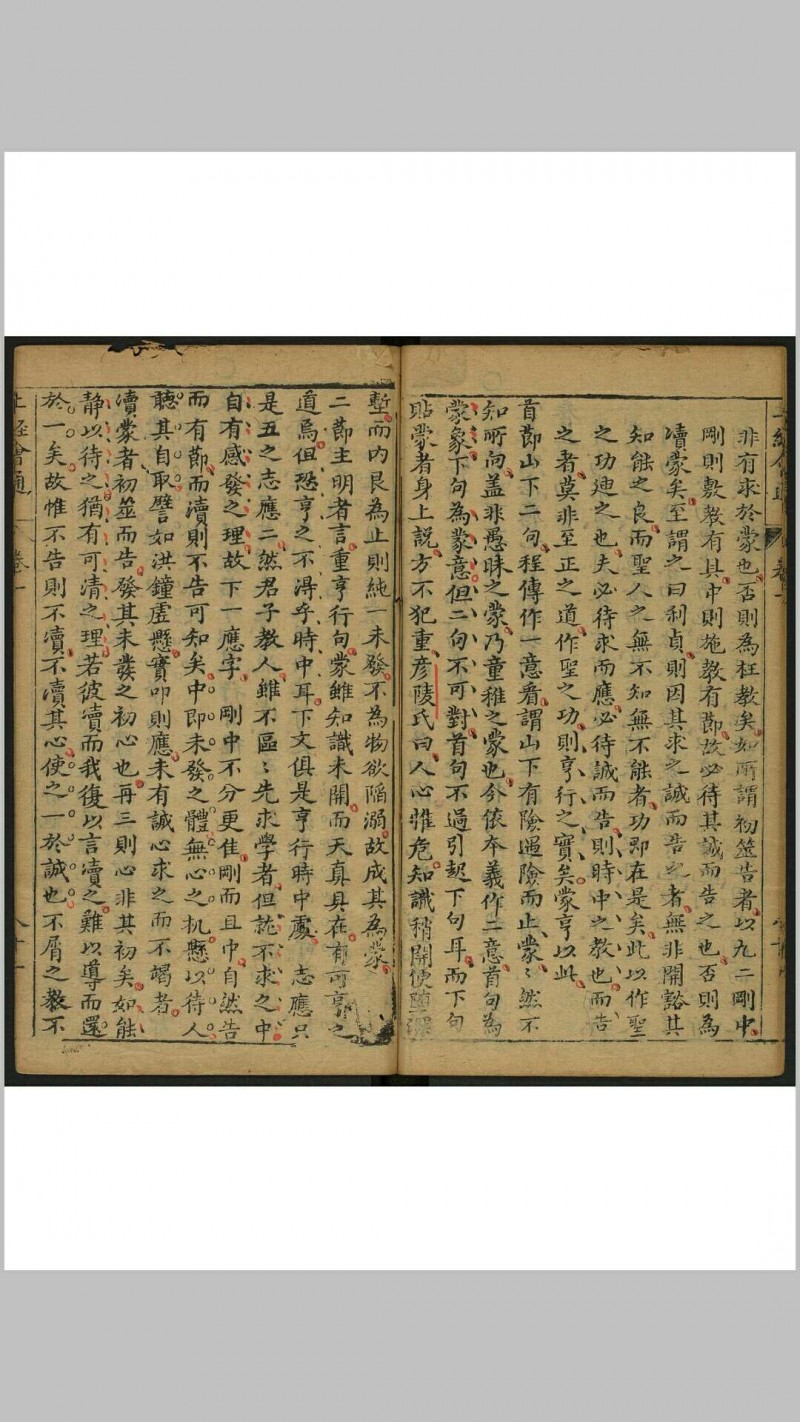 非有求於蒙也否則為枉教矣如所謂初筮告者以九二剛中
剛則敷教有具中則施教有節故必待其誠而告之也否則為
瀆蒙矣至謂之曰利貞則因其求之誠而告之者無非開豁其
知能之良而聖人之無不知無不能者功即在是矣此以作聖
之功迪之也夫必待求而應必待誠而告則時中之教也而告
之者莫非至正之道作聖之功則亨行之實矣蒙亨以此
首節山下二句程傳作一意看謂山下有險遇險而止蒙〻然不
知所向蓋非愚昧之蒙乃童稚之蒙也今依本義作二意首句為
蒙象下句為蒙意但二句不可對首句不過引起下句耳而下句
貼蒙者身上說方不犯重彥陵氏曰人心惟危知識稍開便墮深
塹而內艮為止則純一未發不為物欲陷溺故成其為蒙
二節主明者言重亨行句蒙雖知識未開而天真具在有可亨之
道焉但恐亨之不得乎時中耳下文俱是亨行時中處 志應只
是五之志應二然君子教人雖不區〻先求學者但說不求之中
自有感發之理故下一應字 剛中不分更佳剛而且中自然告
而有節而瀆則不告可知矣中即未發之體無心之机懸以待人
聽其自取譬如洪鐘虛懸實叩則應未有誠心求之而不竭者
瀆蒙者初筮而告發其未發之初心也再三則心非其初矣如能
靜以待之猶有可清之理若彼瀆而我復以言瀆之雖以導而還
於一矣故惟不告則不瀆不瀆其心使之一於誠也不屑之教不
上經會通 卷一 八十一